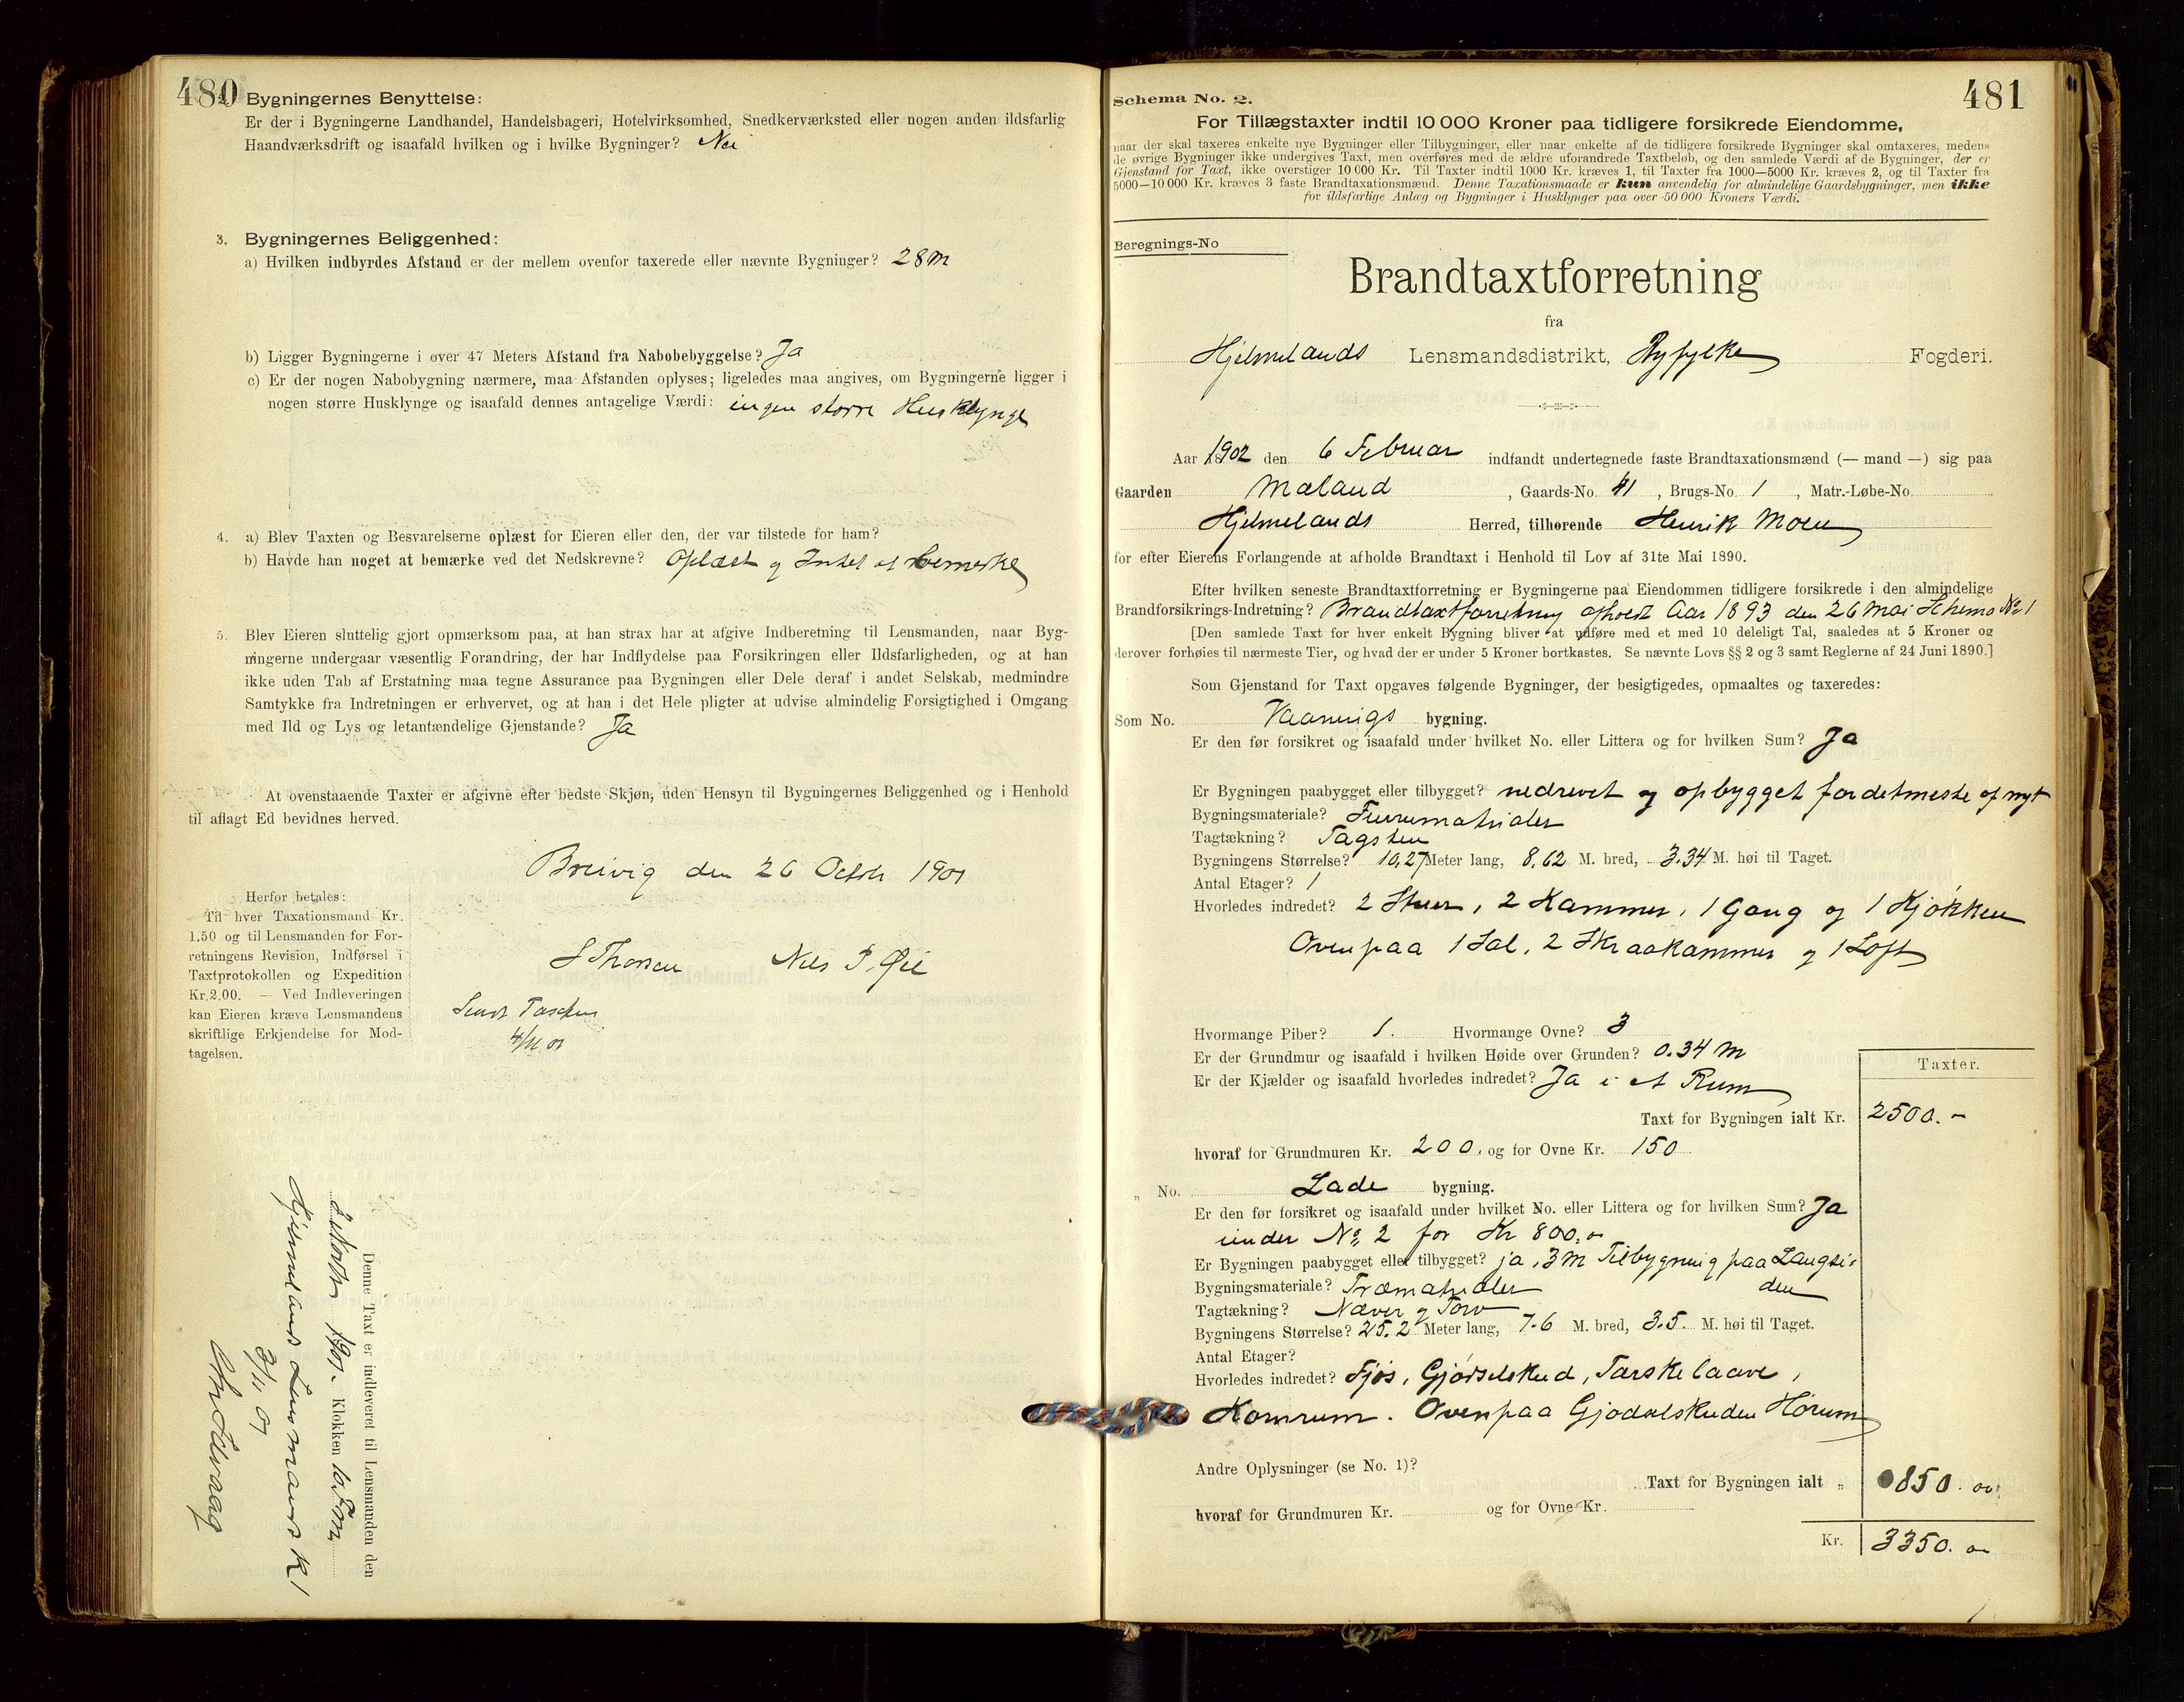 480
2. Bygningernes Benyttelse:
Er der i Bygningerne Landhandel, Handelsbageri, Hotelvirksomhed, Snedkerværksted eller nogen anden ildsfarlig
Haandværksdrift og isaafald hvilken og i hvilke Bygninger? Nei
3. Bygningernes Beliggenhed:
a) Hvilken indbyrdes Afstand er der mellem ovenfor taxerede eller nævnte Bygninger? 28 m
b) Ligger Bygningerne i over 47 Meters Afstand fra Nabobebyggelse? Ja
c) Er der nogen Nabobygning nærmere, maa Afstanden oplyses; ligeledes maa angives, om Bygningerne ligger i
nogen større Husklynge og isaafald dennes antagelige Værdi: ingen større Husklynge
4. a) Blev Taxten og Besvarelserne oplæst for Eieren eller den, der var tilstede for ham?
b) Havde han noget at bemærke ved det Nedskrevne? Oplæst og Intet at bemerke
5. Blev Eieren sluttelig gjort opmærksom paa, at han strax har at afgive Indberetning til Lensmanden, naar Byg-
ningerne undergaar væsentlig Forandring, der har Indflydelse paa Forsikringen eller Ildsfarligheden, og at han
ikke uden Tab af Erstatning maa tegne Assurance paa Bygningen eller Dele deraf i andet Selskab, medmindre
Samtykke fra Indretningen er erhvervet, og at han i det Hele pligter at udvise almindelig Forsigtighed i Omgang
med Ild og Lys og letantændelige Gjenstande? Ja
At ovenstaaende Taxter er afgivne efter bedste Skjøn, uden Hensyn til Bygningernes Beliggenhed og i Henhold
til aflagt Ed bevidnes herved.
Breivig den 26 Octob 1901
Herfor betales:
Til hver Taxationsmand Kr.
1.50 og til Lensmanden for For-
retningens Revision, Indførsel i
Taxtprotokollen og Expedition
Kr. 2.00. — Ved Indleveringen
kan Eieren kræve Lensmandens
skriftlige Erkjendelse for Mod-
tagelsen.
S Thorsen Nils P. Øie
4/11 01
Denne Taxt er indleveret til Lensmanden den
2 Novbr 1901. Klokken 10 Form
Hjelmelands Lensmandskt
3/11 01
481
Schema No. 2.
For Tillægstaxter indtil 10 000 Kroner paa tidligere forsikrede Eiendomme,
naar der skal taxeres enkelte nye Bygninger eller Tilbygninger, eller naar enkelte af de tidligere forsikrede Bygninger skal omtaxeres, medens
de øvrige Bygninger ikke undergives Taxt, men overføres med de ældre uforandrede Taxtbeløb, og den samlede Værdi af de Bygninger, der er
Gjenstand for Taxt, ikke overstiger 10 000 Kr. Til Taxter indtil 1000 Kr. kræves 1, til Taxter fra 1000—5000 Kr. kræves 2, og til Taxter fra
5000—10 000 Kr. kræves 3 faste Brandtaxationsmænd. Denne Taxationsmaade er kun anvendelig for almindelige Gaardsbygninger, men ikke
for ildsfarlige Anlæg og Bygninger i Husklynger paa over 50 000 Kroners Værdi.
Beregnings-No
Brandtaxtforretning
fra
Hjelmelands Lensmandsdistrikt, Ryfylke Fogderi.
Aar 1902 den 6 Februar indfandt undertegnede faste Brandtaxationsmænd (— mand —) sig paa
Gaarden Mæland, Gaards-No. 41, Brugs-No. 1, Matr.-Løbe-No.
Hjelmelands Herred, tilhørende Henrik Moen
for efter Eierens Forlangende at afholde Brandtaxt i Henhold til Lov af 31te Mai 1890.
Efter hvilken seneste Brandtaxtforretning er Bygningerne paa Eiendommen tidligere forsikrede i den almindelige
Brandforsikrings-Indretning? Brandtaxtforretning afholdt Aar 1893 den 26 Mai Schema No 1
[Den samlede Taxt for hver enkelt Bygning bliver at udføre med et med 10 deleligt Tal, saaledes at 5 Kroner og
derover forhøies til nærmeste Tier, og hvad der er under 5 Kroner bortkastes. Se nævnte Lovs §§ 2 og 3 samt Reglerne af 24 Juni 1890.]
Som Gjenstand for Taxt opgaves følgende Bygninger, der besigtigedes, opmaaltes og taxeredes:
Som No. Vaanings bygning.
Er den før forsikret og isaafald under hvilket No. eller Littera og for hvilken Sum? Ja
Er Bygningen paabygget eller tilbygget? nedrevet og opbygget fordetmeste af nyt
Bygningsmateriale? Furrumatrialer
Tagtækning? Tagsten
Bygningens Størrelse? 10,27 Meter lang, 8,62 M. bred, 3.34 M. høi til Taget.
Antal Etager? 1
Hvorledes indredet? 2 Stuer, 2 Kammer, 1 Gang og 1 Kjøkken
Ovenpaa 1 Sal, 2 Skraakammer og 1 Loft
Hvormange Piber? 1. Hvormange Ovne? 3
Er der Grundmur og isaafald i hvilken Høide over Grunden? 0.34 m
Er der Kjælder og isaafald hvorledes indredet? Ja i et Rum
Taxter.
Taxt for Bygningen ialt Kr. 2500.-
hvoraf for Grundmuren Kr. 200. og for Ovne Kr. 150
„ No. Lade bygning.
Er den før forsikret og isaafald under hvilket No. eller Littera og for hvilken Sum? Ja
under No 2 for Kr 800.00
Er Bygningen paabygget eller tilbygget? ja, 3 m Tilbygning paa Langsi-
den
Bygningsmateriale? Træmatrialer
Tagtækning? Næver og Torv
Bygningens Størrelse? 25.2 Meter lang, 7.6 M. bred, 3.5. M. høi til Taget.
Antal Etager?
Hvorledes indredet? Fjøs, Gjødselskud, Tærskelaave,
Kornrum. Ovenpaa Gjødselskuden Hørum
Andre Oplysninger (se No. 1)?
Taxt for Bygningen ialt „ 850.00
hvoraf for Grundmuren Kr. og for Ovne Kr.
Kr. 3350.00